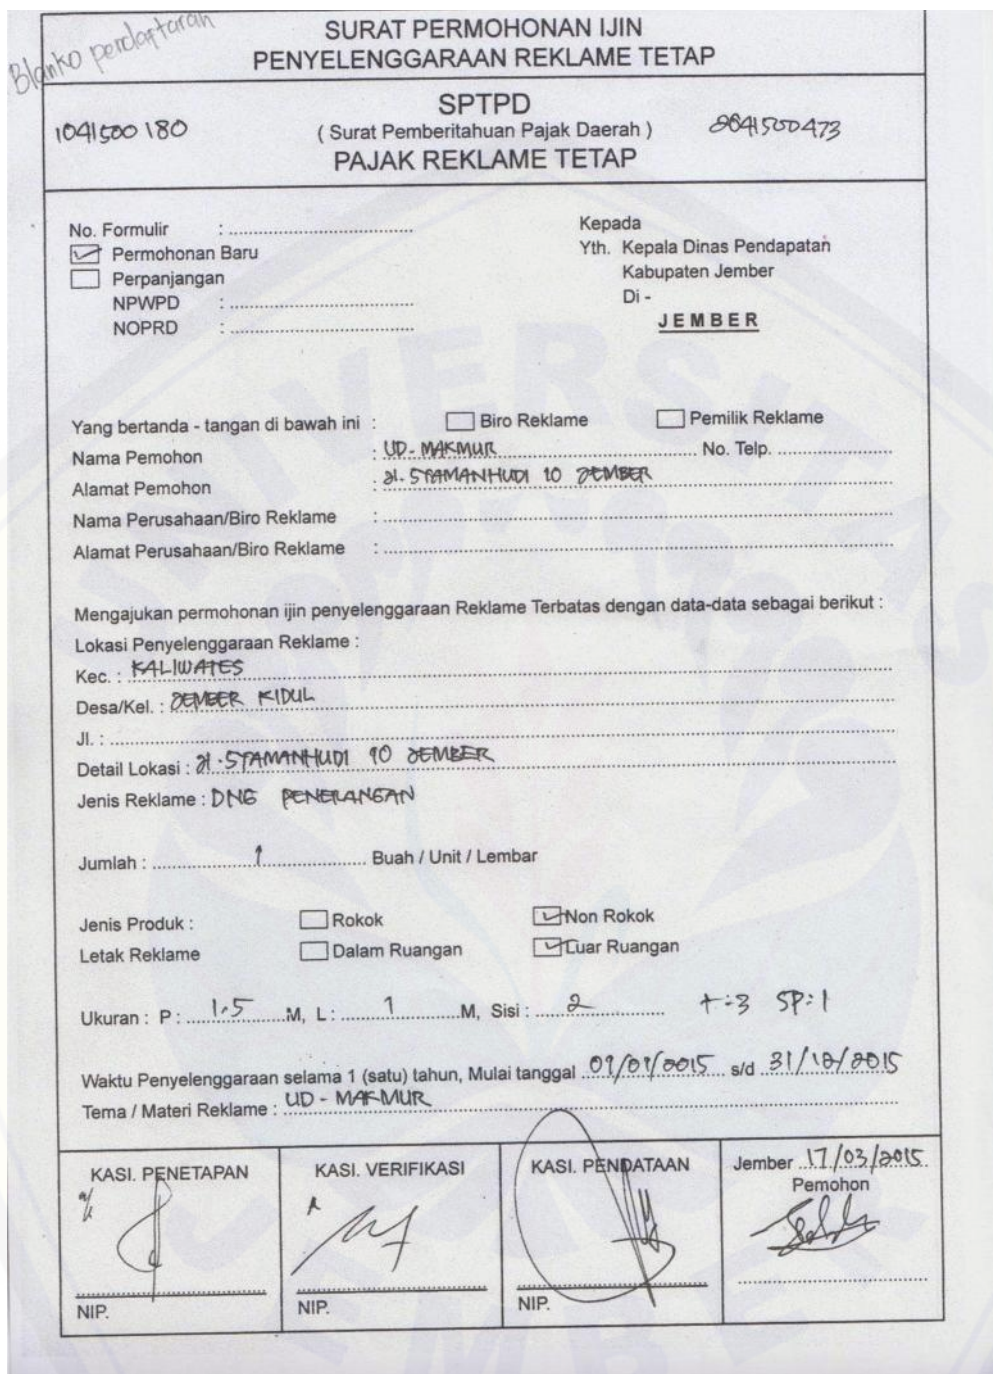 Blanko pendaftaran
SURAT PERMOHONAN IJIN
PENYELENGGARAAN REKLAME TETAP
SPTPD
1041500180 ( Surat Pemberitahuan Pajak Daerah ) 2041500473
PAJAK REKLAME TETAP
No. Formulir : Kepada
Permohonan Baru Yth. Kepala Dinas Pendapatan
Perpanjangan Kabupaten Jember
NPWPD : Di -
NOPRD : JEMBER
Yang bertanda - tangan di bawah ini : Biro Reklame Pemilik Reklame
Nama Pemohon : UD - MAKMUR No. Telp.
Alamat Pemohon : Jl. SYAMANHUDI 10 JEMBER
Nama Perusahaan/Biro Reklame :
Alamat Perusahaan/Biro Reklame :
Mengajukan permohonan ijin penyelenggaraan Reklame Terbatas dengan data-data sebagai berikut :
Lokasi Penyelenggaraan Reklame :
Kec. : KALIWATES
Desa/Kel. : JEMBER KIDUL
Jl. :
Detail Lokasi : Jl. SYAMANHUDI 10 JEMBER
Jenis Reklame : DNG PENERANGAN
Jumlah : 1 Buah / Unit / Lembar
Jenis Produk : Rokok Non Rokok
Letak Reklame Dalam Ruangan Luar Ruangan
Ukuran : P : 1.5 M, L : 1 M, Sisi : 2 t=3 SP=1
Waktu Penyelenggaraan selama 1 (satu) tahun, Mulai tanggal 01/01/2015 s/d 31/12/2015
Tema / Materi Reklame : UD - MAKMUR
KASI. PENETAPAN KASI. VERIFIKASI KASI. PENDATAAN Jember 17/03/2015
Pemohon
NIP. NIP. NIP.
UNIVERSITAS
JEMBER